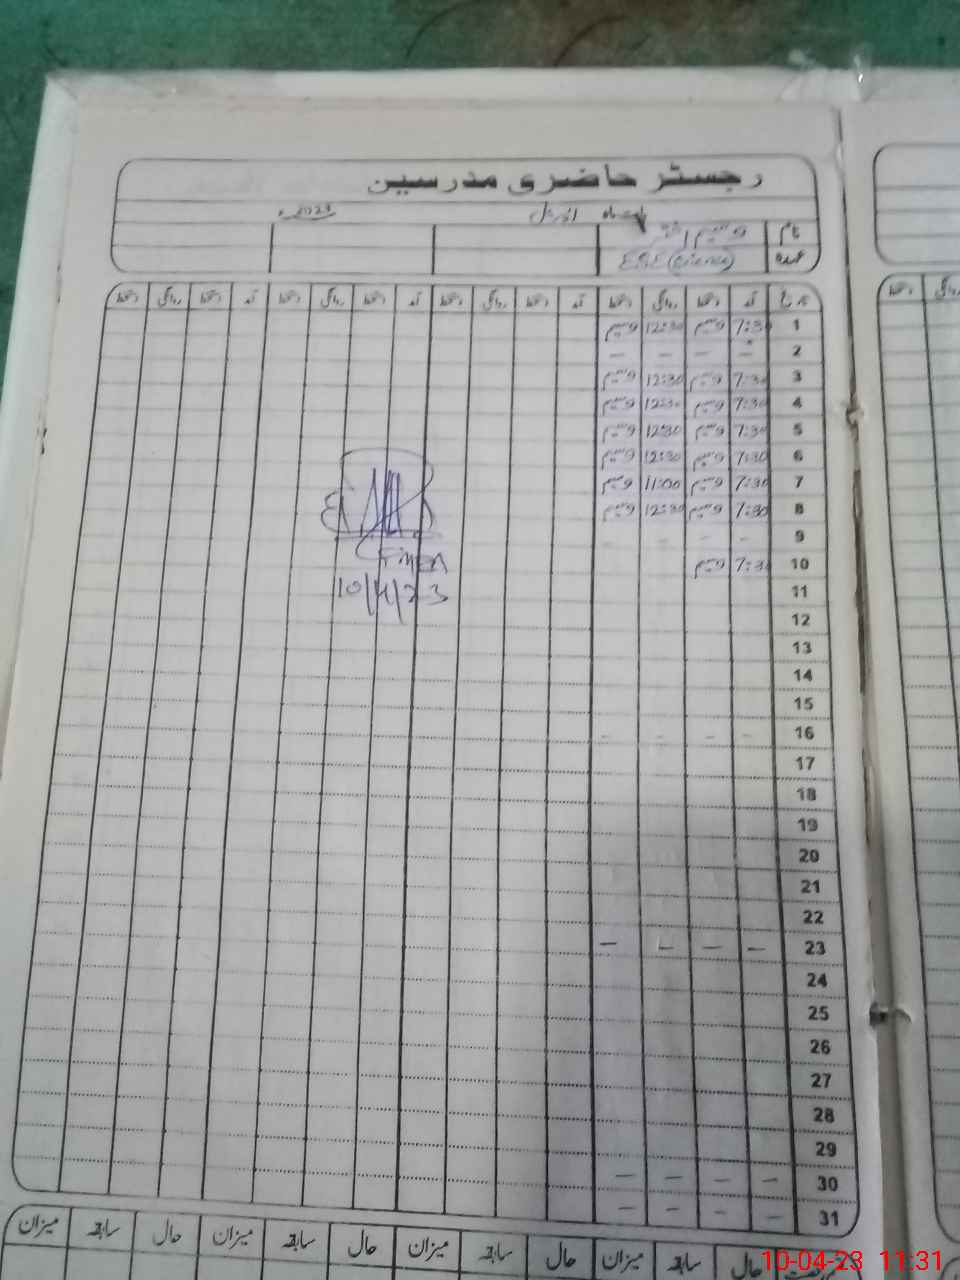 رجسٹر حاضری مدرسین
بابت ماہ اپریل 2023ء
نام وسیم
عہدہ ESE (Science)
تاریخ آمد دستخط روانگی دستخط آمد دستخط روانگی دستخط آمد دستخط روانگی دستخط
1 7:30 وسیم 12:30 وسیم
2 – – – –
3 7:30 وسیم 12:30 وسیم
4 7:30 وسیم 12:30 وسیم
5 7:30 وسیم 12:30 وسیم
6 7:30 وسیم 12:30 وسیم
7 7:30 وسیم 11:00 وسیم
8 7:30 وسیم 12:30 وسیم
9 - - - -
10 7:30 وسیم
10/4/23
11
12
13
14
15
16 - - - -
17
18
19
20
21
22
23 – – – –
24
25
26
27
28
29
30 – – – –
31 – – – –
حال سابقہ میزان حال سابقہ میزان حال سابقہ میزان حال سابقہ میزان
10-04-23 11:31
دستخط روانگی